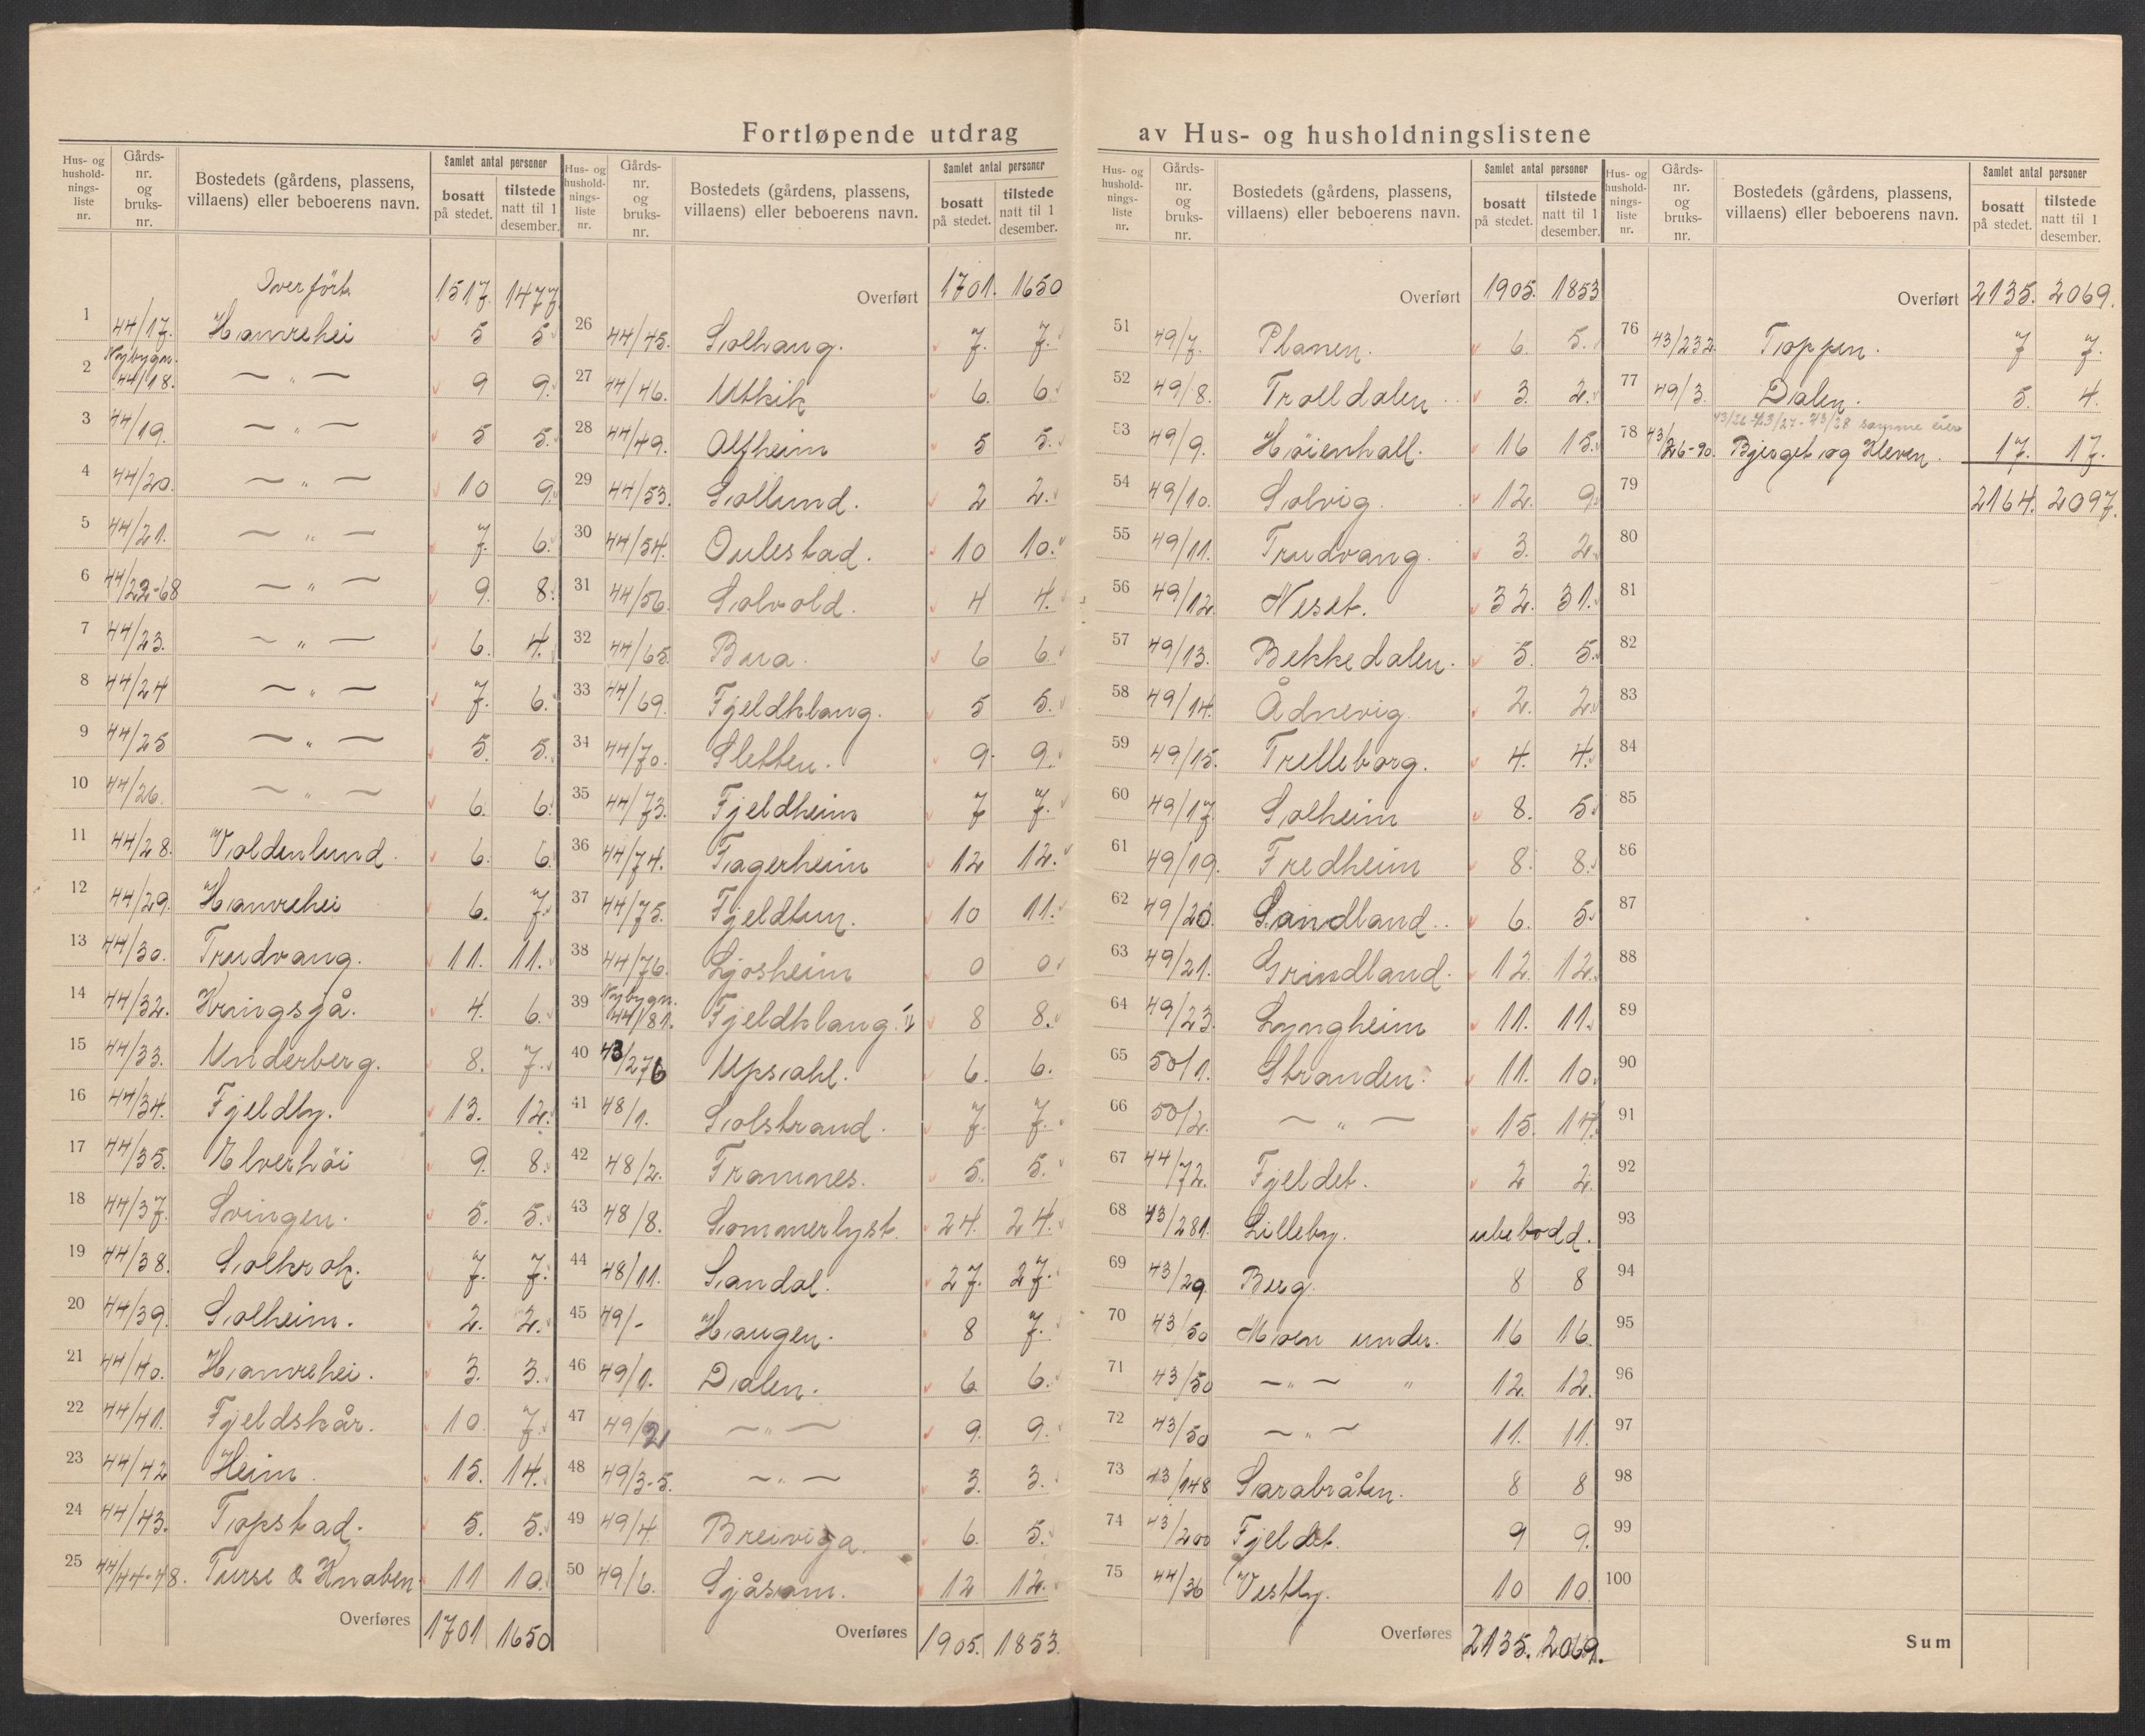 Fortløpende utdrag av Hus- og husholdningslistene
Hus- og hushold-nings-liste nr. | Gårds-nr. og bruks-nr. | Bostedets (gårdens, plassens, villaens) eller beboerens navn. | Samlet antal personer | bosatt på stedet. | tilstede natt til 1 desember.
Overført 1517. 1477.
1 44/17. Hanrehei 5 5
2 Nybygn. 44/18. — „ — 9 9.
3 44/19. — „ — 5 5.
4 44/20. — „ — 10 9.
5 44/21. — „ — 7. 6.
6 44/22-68 — „ — 9. 8.
7 44/23. — „ — 6. 4.
8 44/24 — „ — 7. 6.
9 44/25 — „ — 5. 5.
10 44/26. — „ — 6. 6.
11 44/28. Voldenlund. 6. 6.
12 44/29. Hanrehei 6. 7.
13 44/30. Trudvang. 11. 11.
14 44/32. Kringsjå. 4. 6.
15 44/33. Underberg. 8. 7.
16 44/34. Fjeldby. 13. 12.
17 44/35. Elverhöi 9. 8.
18 44/37. Svingen. 5. 5.
19 44/38. Solkrok. 7. 7.
20 44/39. Solheim. 2. 2.
21 44/40. Hanrehei. 3. 3.
22 44/41. Fjeldskår. 10. 7.
23 44/42 Heim. 15. 14.
24 44/43. Topstad. 5. 5.
25 44/44-48. Turse & Knaben 11 10.
Overføres 1701 1650
Hus- og hushold-nings-liste nr. | Gårds-nr. og bruks-nr. | Bostedets (gårdens, plassens, villaens) eller beboerens navn. | Samlet antal personer | bosatt på stedet. | tilstede natt til 1 desember.
Overført 1701. 1650
26 44/45. Solhaug. 7. 7.
27 44/46. Utkik 6. 6.
28 44/49. Alfheim 5 5.
29 44/53. Sollund. 2 2.
30 44/54. Oulestad. 10 10.
31 44/56. Solvold. 4 4.
32 44/65. Bora. 6 6.
33 44/69. Fjeldklang. 5 5.
34 44/70. Sletten. 9. 9.
35 44/73. Fjeldheim 7 7.
36 44/74. Fagerheim 12 12.
37 44/75. Fjeldtun. 10 11.
38 44/76. Ljosheim 0 0.
39 Nybygn. 44/81. Fjeldklang. II 8 8.
40 43/276 Upsahl. 6. 6.
41 48/1. Solstrand. 7. 7.
42 48/2. Framnes. 5. 5.
43 48/8. Sommerlyst. 24. 24.
44 48/11. Sandal. 27. 27.
45 49/- Haugen. 8 7.
46 49/1. Dalen. 6 6.
47 49/2 — „ — 9. 9.
48 49/3-5. — „ — 3. 3.
49 49/4. Breiviga. 6. 5.
50 49/6. Sjåsum. 12 12.
Overføres 1905. 1853.
Hus- og hushold-nings-liste nr. | Gårds-nr. og bruks-nr. | Bostedets (gårdens, plassens, villaens) eller beboerens navn. | Samlet antal personer | bosatt på stedet. | tilstede natt til 1 desember.
Overført 1905. 1853
51 49/7. Planen. 6. 5.
52 49/8. Trolldalen 3. 2.
53 49/9. Høienhall. 16 15.
54 49/10. Solvig. 12. 9.
55 49/11. Trudvang. 3. 2.
56 49/12. Neset. 32. 31.
57 49/13. Bekkedalen. 5. 5.
58 49/14. Ådnevig. 2. 2.
59 49/15. Trelleborg. 4. 4.
60 49/17. Solheim 8. 5.
61 49/19. Fredheim 8. 8.
62 49/20. Sandland. 6. 5.
63 49/21. Grindland. 12. 12.
64 49/23. Lyngheim 11. 11.
65 50/1. Stranden. 11. 10.
66 50/2. — „ — 15. 14.
67 44/72. Fjeldet. 2 2.
68 43/281. Lilleby. ubebodd.
69 43/29 Berg. 8 8
70 43/50 Moen under. 16 16.
71 43/50 — „ — „ 12. 12.
72 43/50 — „ — 11. 11.
73 43/148 Sarabråten. 8 8
74 43/200 Fjeldet. 9 9.
75 44/36 Vestby. 10 10.
Overføres 2135. 2069.
Hus- og hushold-nings-liste nr. | Gårds-nr. og bruks-nr. | Bostedets (gårdens, plassens, villaens) eller beboerens navn. | Samlet antal personer | bosatt på stedet. | tilstede natt til 1 desember.
Overført 2135. 2069.
76 43/232 Toppen. 7 7.
77 49/3. Dalen. 5. 4.
43/26-43/27-43/28 samme eier
78 43/26-90. Bjerget og Kleven. 17. 17.
79 2164. 2097.
80
81
82
83
84
85
86
87
88
89
90
91
92
93
94
95
96
97
98
99
100
Sum